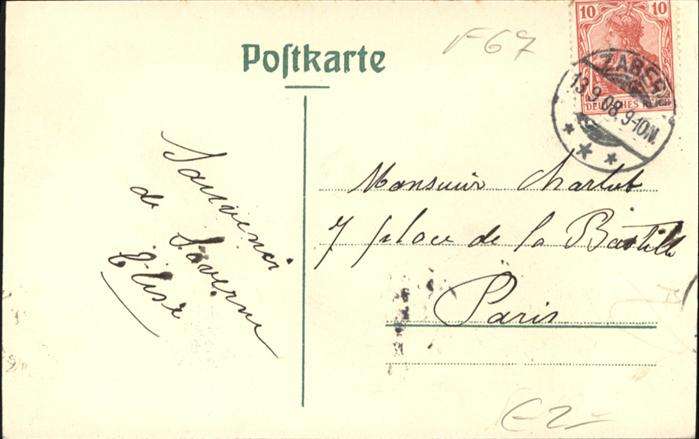 Postkarte
F67
10 10
DEUTSCHES REICH
ZABERN
13.9.08.9-10N.
Souvenir
de Saverne
Elise
Monsieur Charlut
7 place de la Bastille
Paris